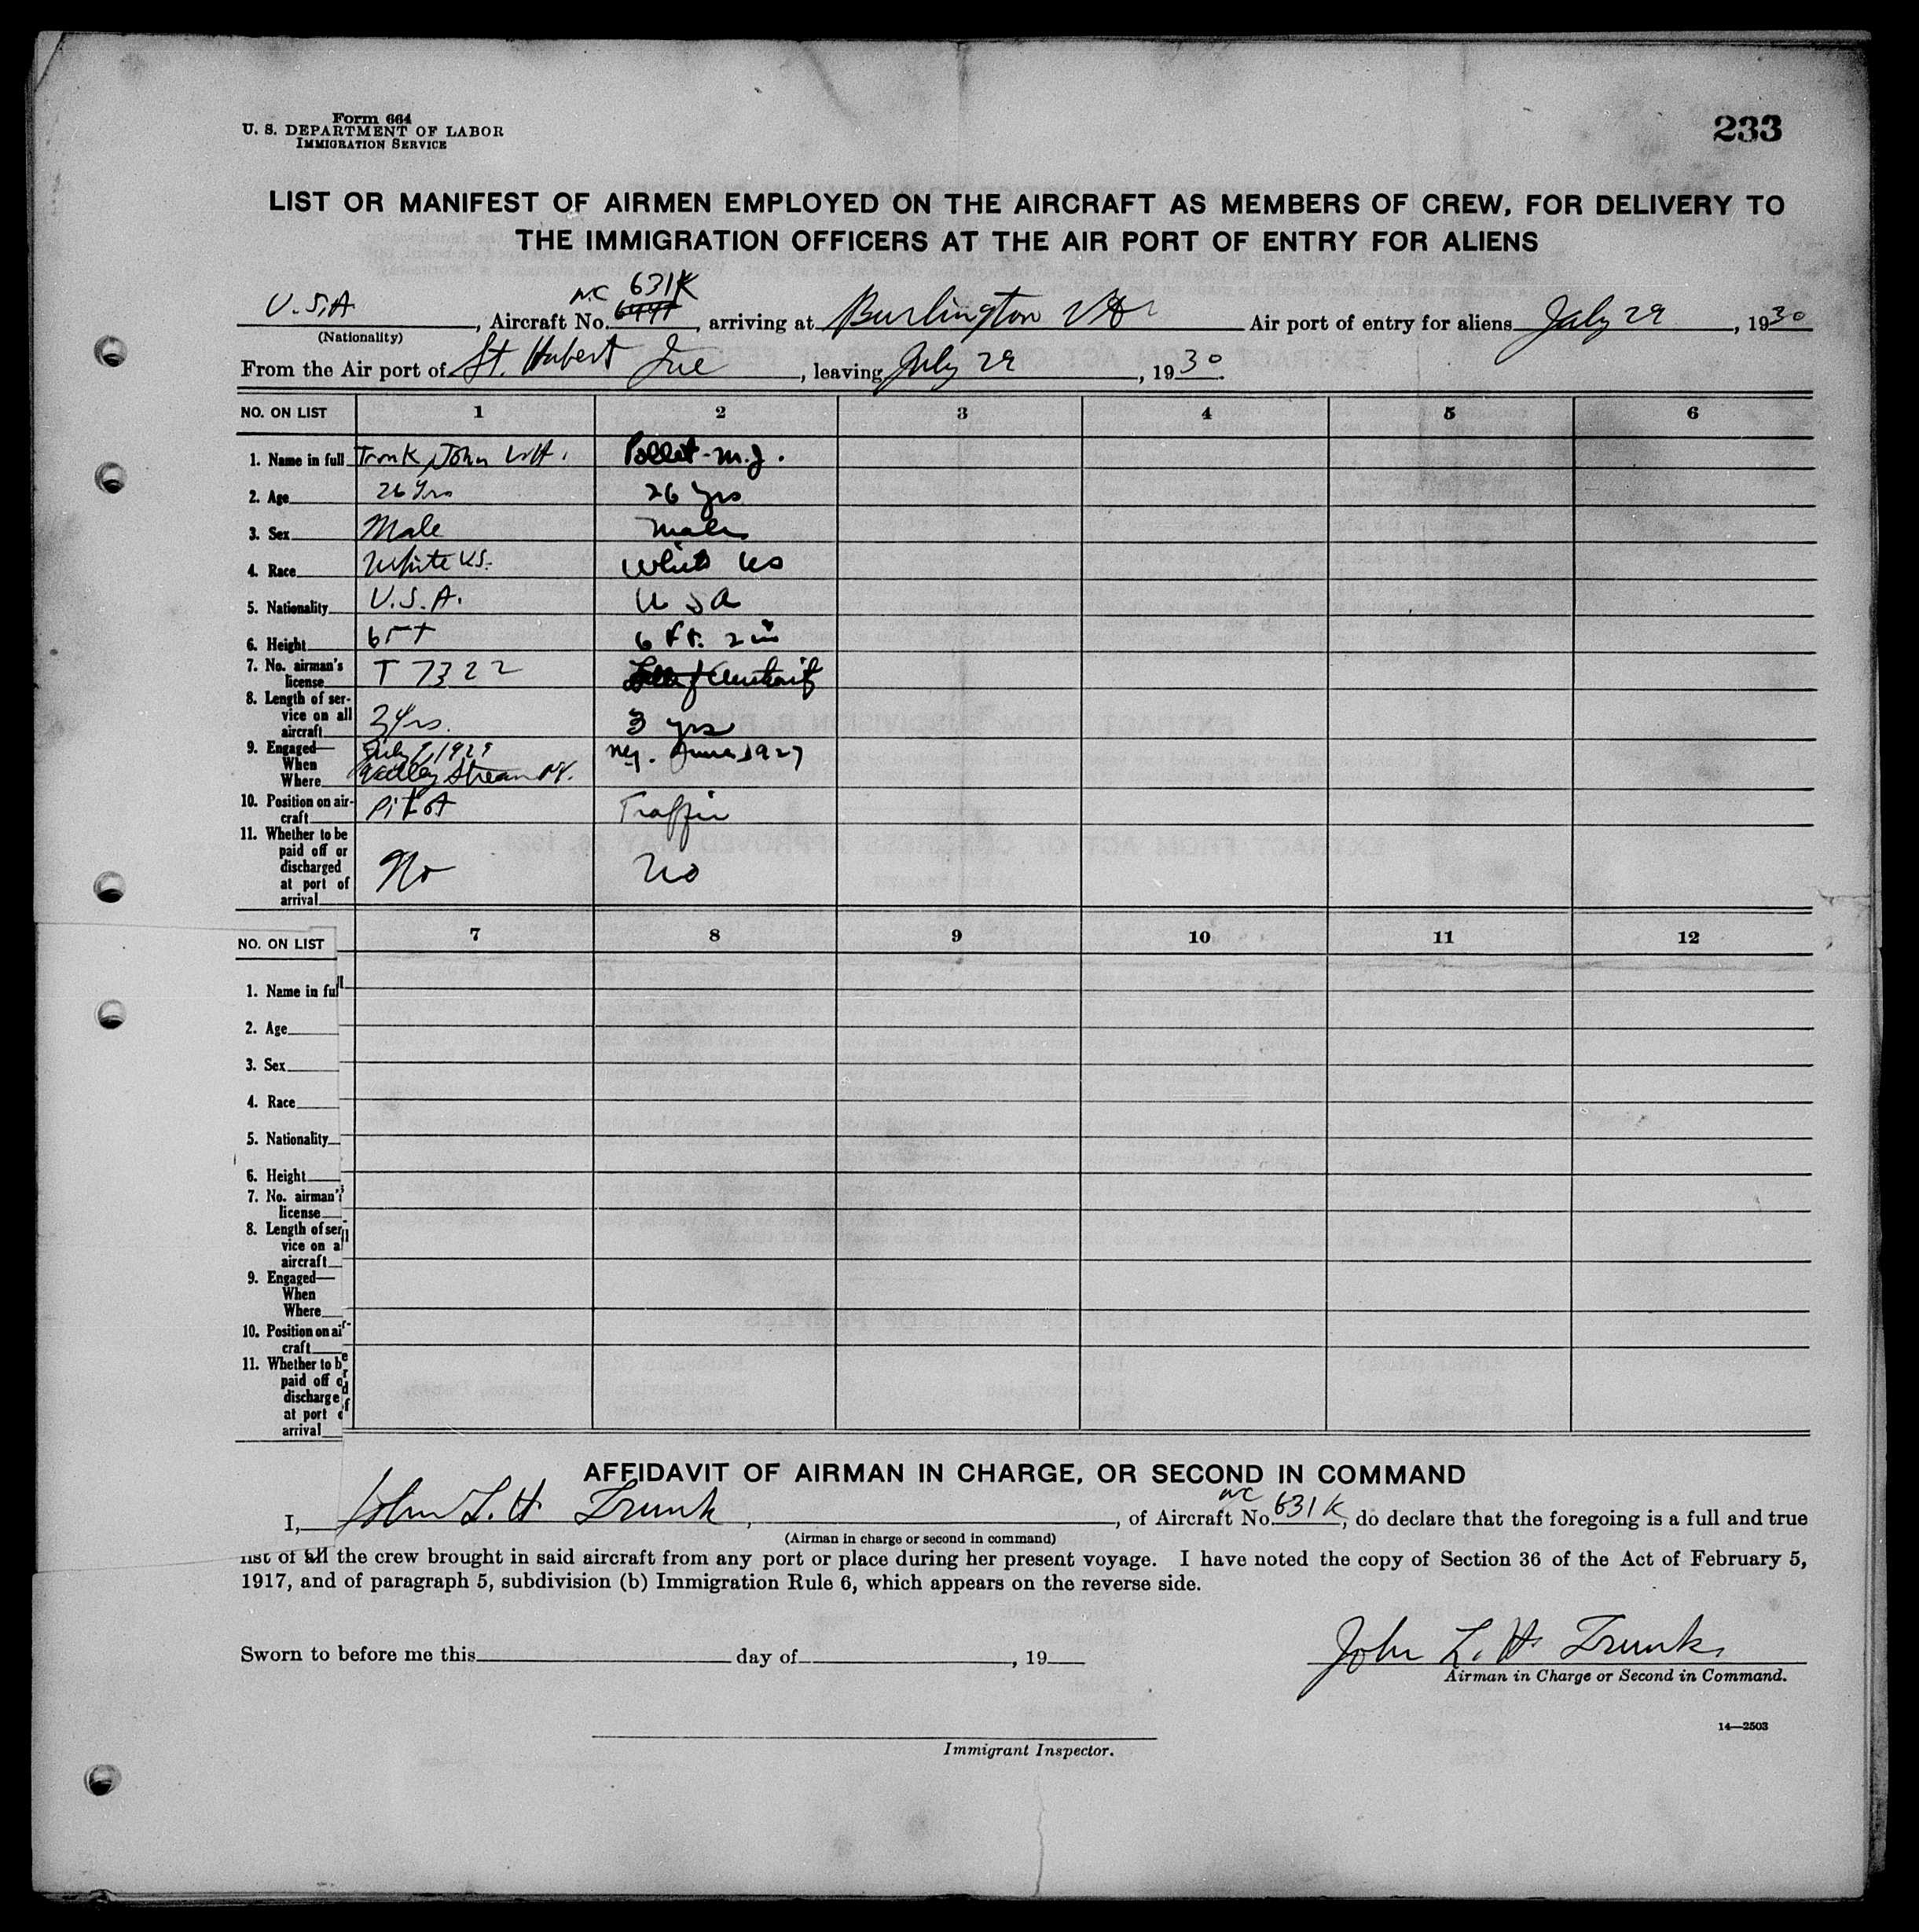 Form 664
U. S. DEPARTMENT OF LABOR
IMMIGRATION SERVICE
233
LIST OR MANIFEST OF AIRMEN EMPLOYED ON THE AIRCRAFT AS MEMBERS OF CREW, FOR DELIVERY TO
THE IMMIGRATION OFFICERS AT THE AIR PORT OF ENTRY FOR ALIENS
NC 631K
U.S.A, Aircraft No. , arriving at Burlington Vt Air port of entry for aliens July 29, 1930
(Nationality)
From the Air port of St. Hubert Que, leaving July 29, 1930.
NO. ON LIST 1 2 3 4 5 6
1. Name in full Trunk, John L.H. Pollet - M.J.
2. Age 26 Yrs 26 yrs
3. Sex Male Male
4. Race White U.S. White US
5. Nationality U.S.A. U S A
6. Height 6 FT 6 ft. 2 in
7. No. airman's
license T 7322
8. Length of ser-
vice on all
aircraft 3 Yrs. 3 yrs
9. Engaged—
When July 9, 1929 N.Y. June 1927
Where Valley Stream N.Y.
10. Position on air-
craft Pilot Traffic
11. Whether to be
paid off or
discharged
at port of
arrival No No
NO. ON LIST 7 8 9 10 11 12
1. Name in full
2. Age
3. Sex
4. Race
5. Nationality
6. Height
7. No. airman's
license
8. Length of ser-
vice on all
aircraft
9. Engaged—
When
Where
10. Position on air-
craft
11. Whether to be
paid off or
discharged
at port of
arrival
AFFIDAVIT OF AIRMAN IN CHARGE, OR SECOND IN COMMAND
I, John L. H. Trunk, , of Aircraft No. NC 631K, do declare that the foregoing is a full and true
(Airman in charge or second in command)
list of all the crew brought in said aircraft from any port or place during her present voyage. I have noted the copy of Section 36 of the Act of February 5,
1917, and of paragraph 5, subdivision (b) Immigration Rule 6, which appears on the reverse side.
Sworn to before me this day of , 19 John L. H. Trunk
Airman in Charge or Second in Command.
14—2503
Immigrant Inspector.